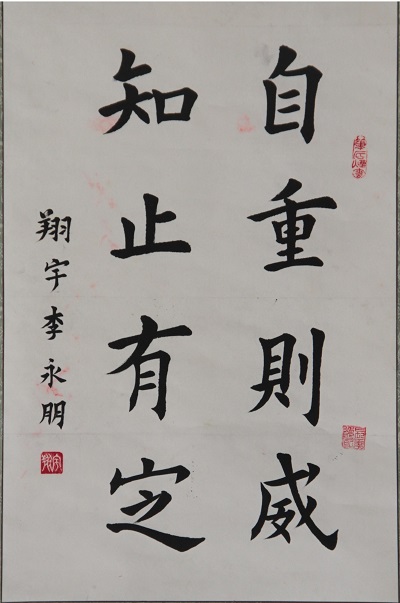 自重則威
知止有定
翔宇李永朋